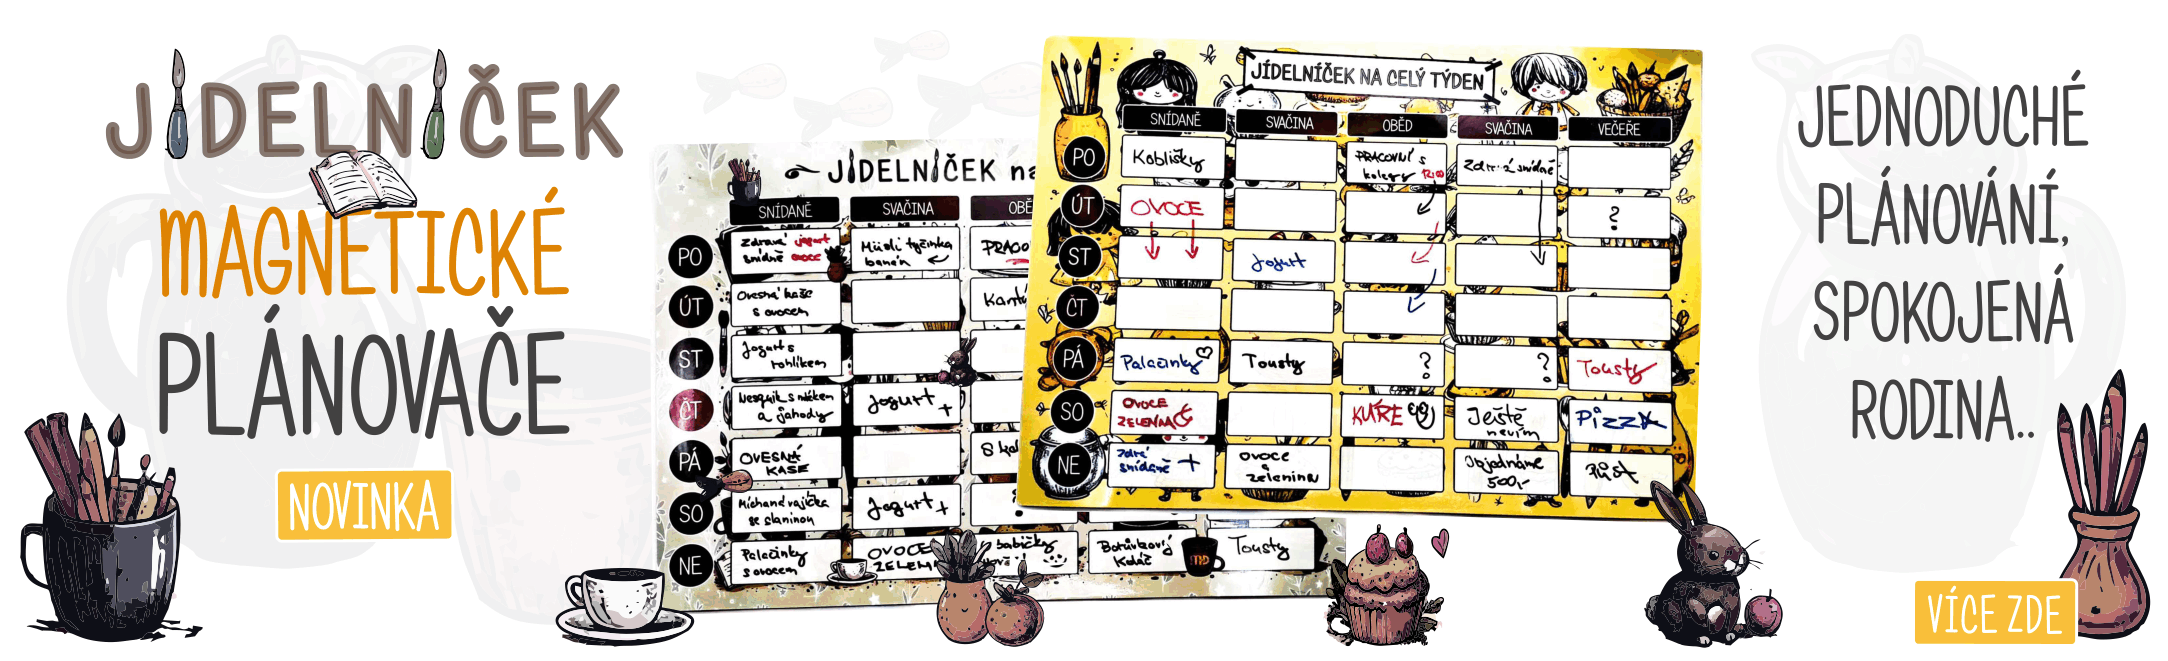 JÍDELNÍČEK
MAGNETICKÉ
PLÁNOVAČE
NOVINKA
JÍDELNÍČEK na
SNÍDANĚ SVAČINA OBĚ
PO Zdravá jogurt Müsli tyčinka PRACOV
snídně ovoce banán
ÚT Ovesná kaše
s ovocem
ST Jogurt s
rohlíkem
ČT Nesquik s mlékem Jogurt +
a jahody
PÁ OVESNÁ
KAŠE
SO Míchaná vajíčka Jogurt +
se slaninou
NE Palačinky OVOCE babičky Borůvkový Tousty
s ovocem ZELENINA Koláč
JÍDELNÍČEK NA CELÝ TÝDEN
SNÍDANĚ SVAČINA OBĚD SVAČINA VEČEŘE
PO Koblišky PRACOVNÍ s snídaně
kolegy 12:00
ÚT OVOCE ?
ST Jogurt
ČT
PÁ Palačinky Tousty ? ? Tousty
SO OVOCE KUŘE Ještě PIZZA
ZELENINA nevím
NE Zdrá OVOCE Objednáme Půst
snídaně + a 500,-
zelenina
JEDNODUCHÉ
PLÁNOVÁNÍ,
SPOKOJENÁ
RODINA..
VÍCE ZDE